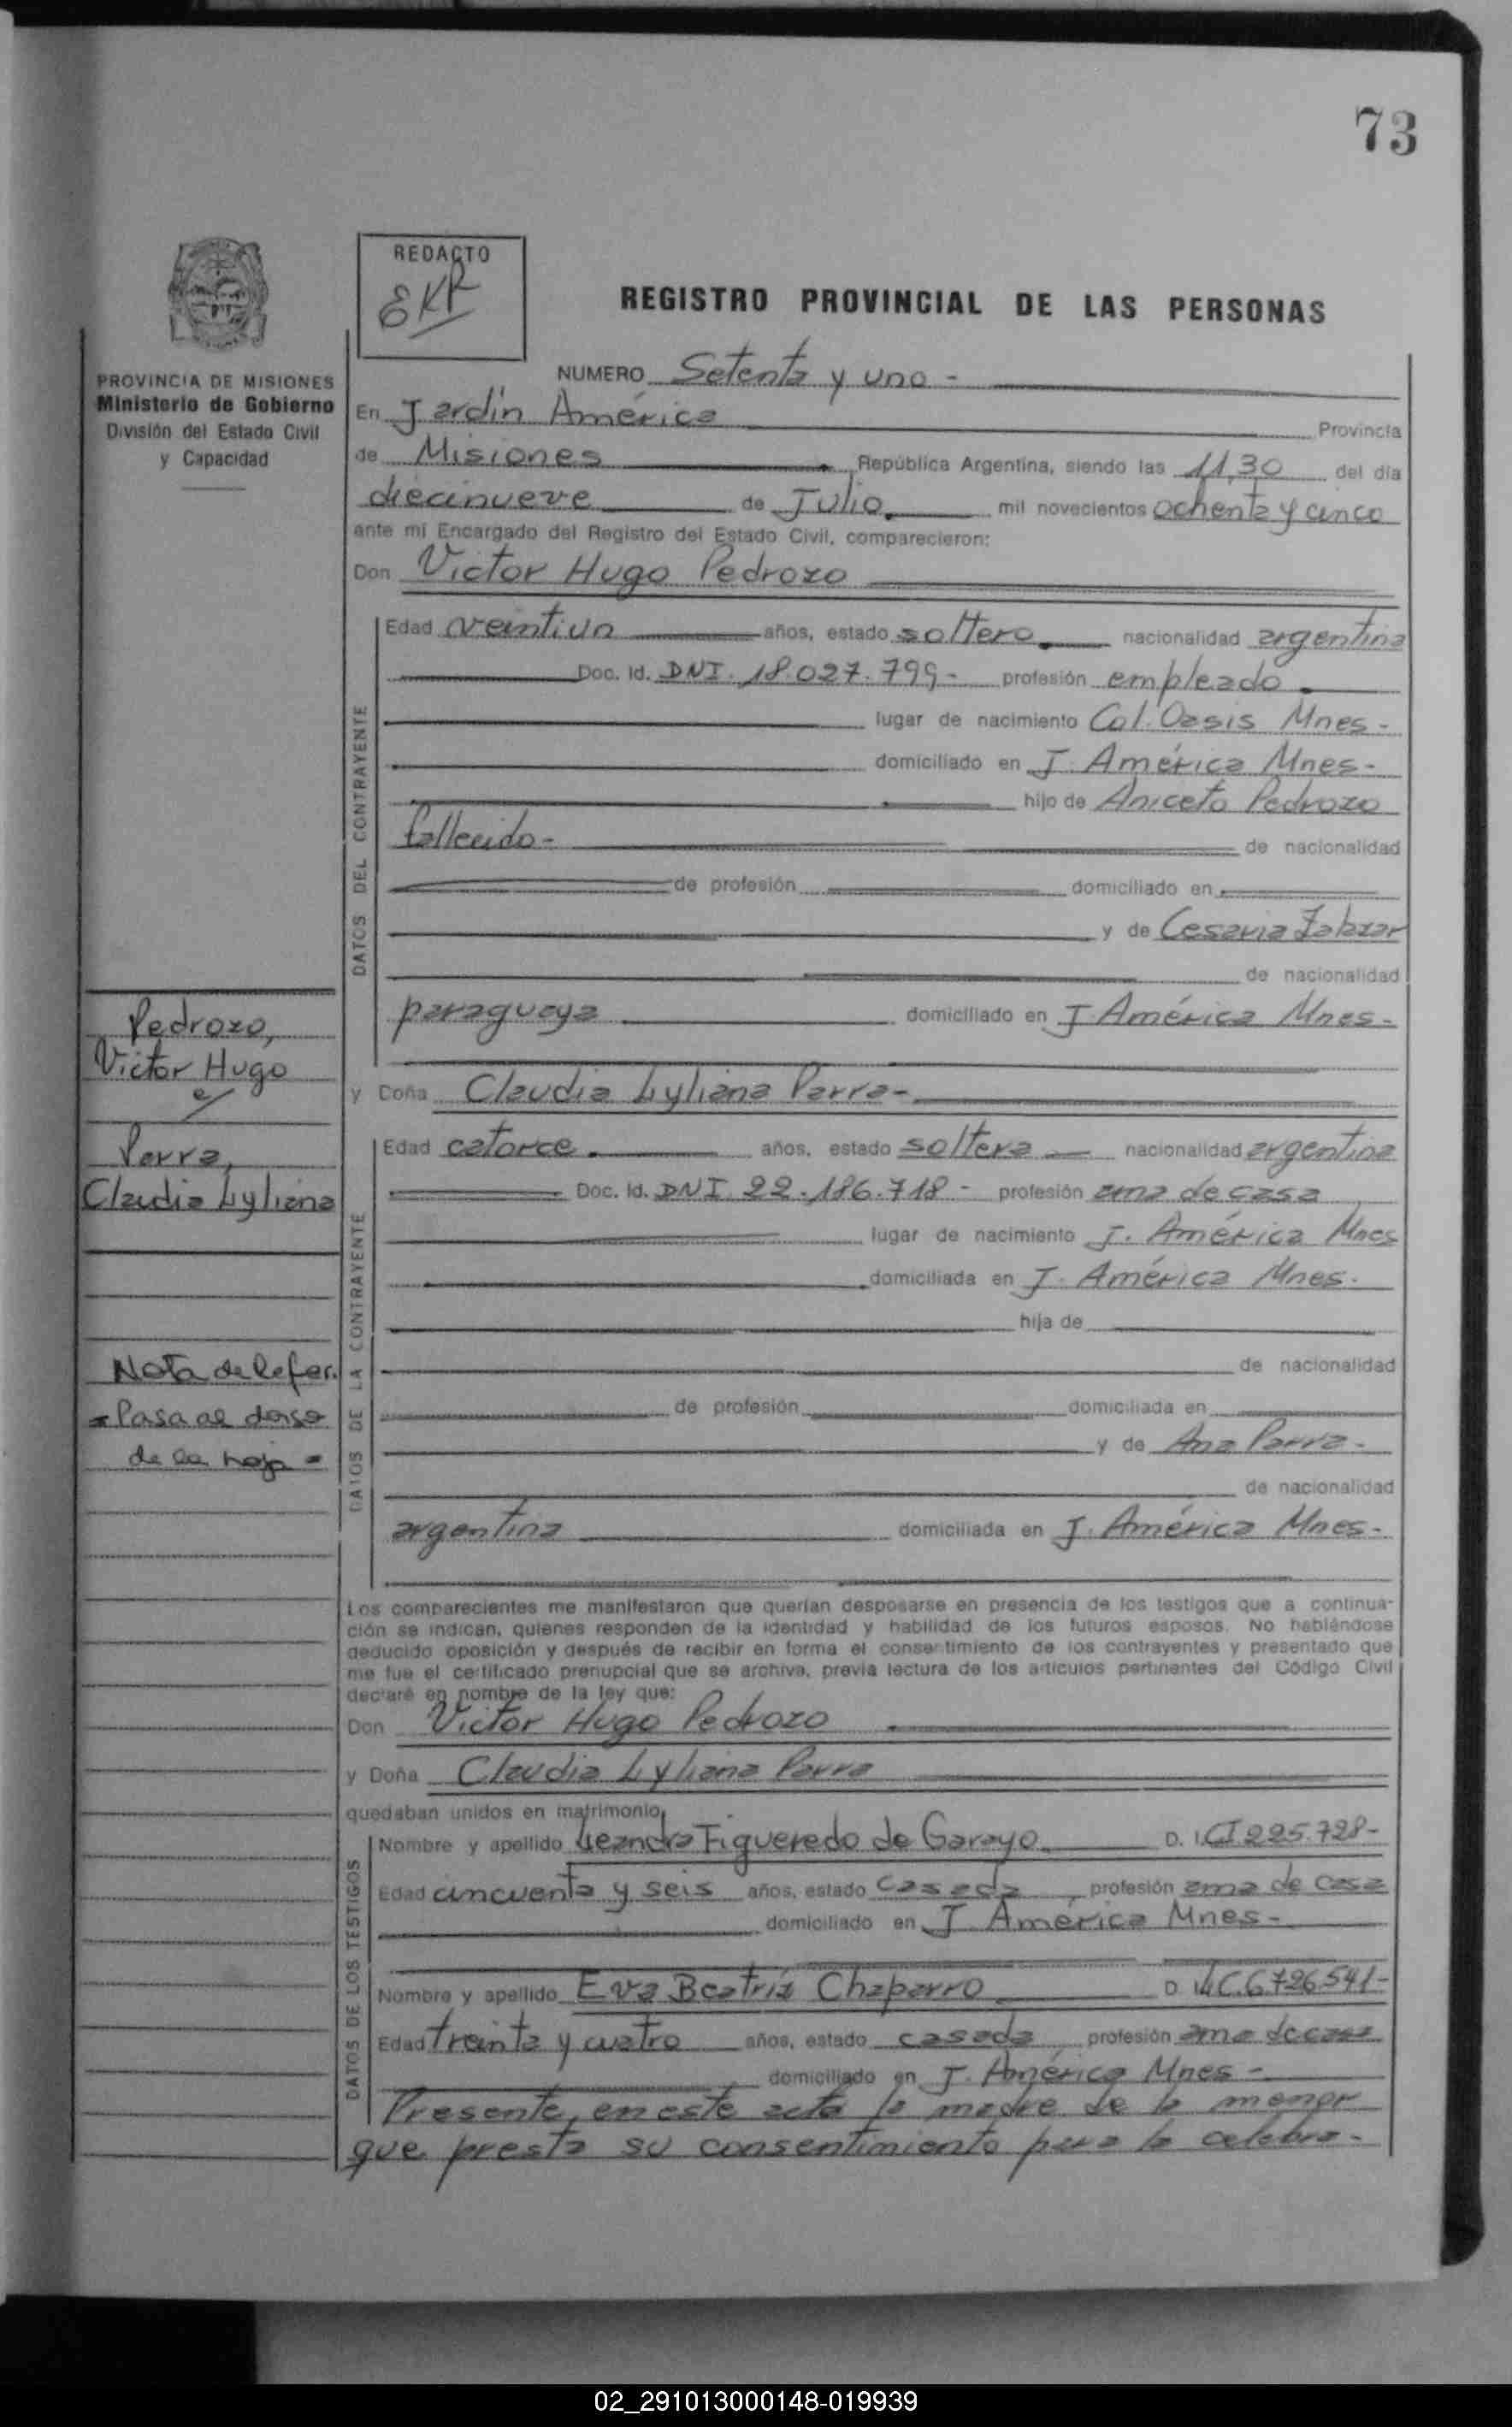 73
REDACTO
EKR
REGISTRO PROVINCIAL DE LAS PERSONAS
PROVINCIA DE MISIONES
Ministerio de Gobierno
División del Estado Civil
y Capacidad
NUMERO Setenta y uno -
En Jardín América Provincia
de Misiones República Argentina, siendo las 11,30 del día
diecinueve de Julio mil novecientos ochenta y cinco
ante mí Encargado del Registro del Estado Civil, comparecieron:
Don Victor Hugo Pedrozo
DATOS DEL CONTRAYENTE
Edad veintiun años, estado soltero nacionalidad argentina
Doc. Id. DNI. 18.027.799- profesión empleado
lugar de nacimiento Col. Oasis Mnes-
domiciliado en J. América Mnes-
hijo de Aniceto Pedrozo
fallecido- de nacionalidad
de profesión domiciliado en
y de Cesaria Zalazar
de nacionalidad
paraguaya domiciliado en J. América Mnes-
Pedrozo,
Victor Hugo
c/
Parra,
Claudia Lyliana
Nota de Refer.
- Pasa al dorso
de la hoja -
y Doña Claudia Lyliana Parra-
DATOS DE LA CONTRAYENTE
Edad catorce años, estado soltera nacionalidad argentina
Doc. Id. DNI 22.186.718- profesión ama de casa
lugar de nacimiento J. América Mnes
domiciliada en J. América Mnes.
hija de
de nacionalidad
de profesión domiciliada en
y de Ana Parra-
de nacionalidad
argentina domiciliada en J. América Mnes-
Los comparecientes me manifestaron que querían desposarse en presencia de los testigos que a continua-
ción se indican, quienes responden de la identidad y habilidad de los futuros esposos. No habiéndose
deducido oposición y después de recibir en forma el consentimiento de los contrayentes y presentado que
me fue el certificado prenupcial que se archiva, previa lectura de los artículos pertinentes del Código Civil
declaré en nombre de la ley que:
Don Victor Hugo Pedrozo
y Doña Claudia Lyliana Parra
quedaban unidos en matrimonio,
DATOS DE LOS TESTIGOS
Nombre y apellido Leandra Figueredo de Garayo D. I. CI 225.728-
Edad cincuenta y seis años, estado casada, profesión ama de casa
domiciliado en J. América Mnes-
Nombre y apellido Eva Beatríz Chaparro D. I. LC. 6.726.541-
Edad treinta y cuatro años, estado casada, profesión ama de casa
domiciliado en J. América Mnes-
Presente, en este acta la madre de la menor
que presta su consentimiento para la celebra-
02_291013000148-019939